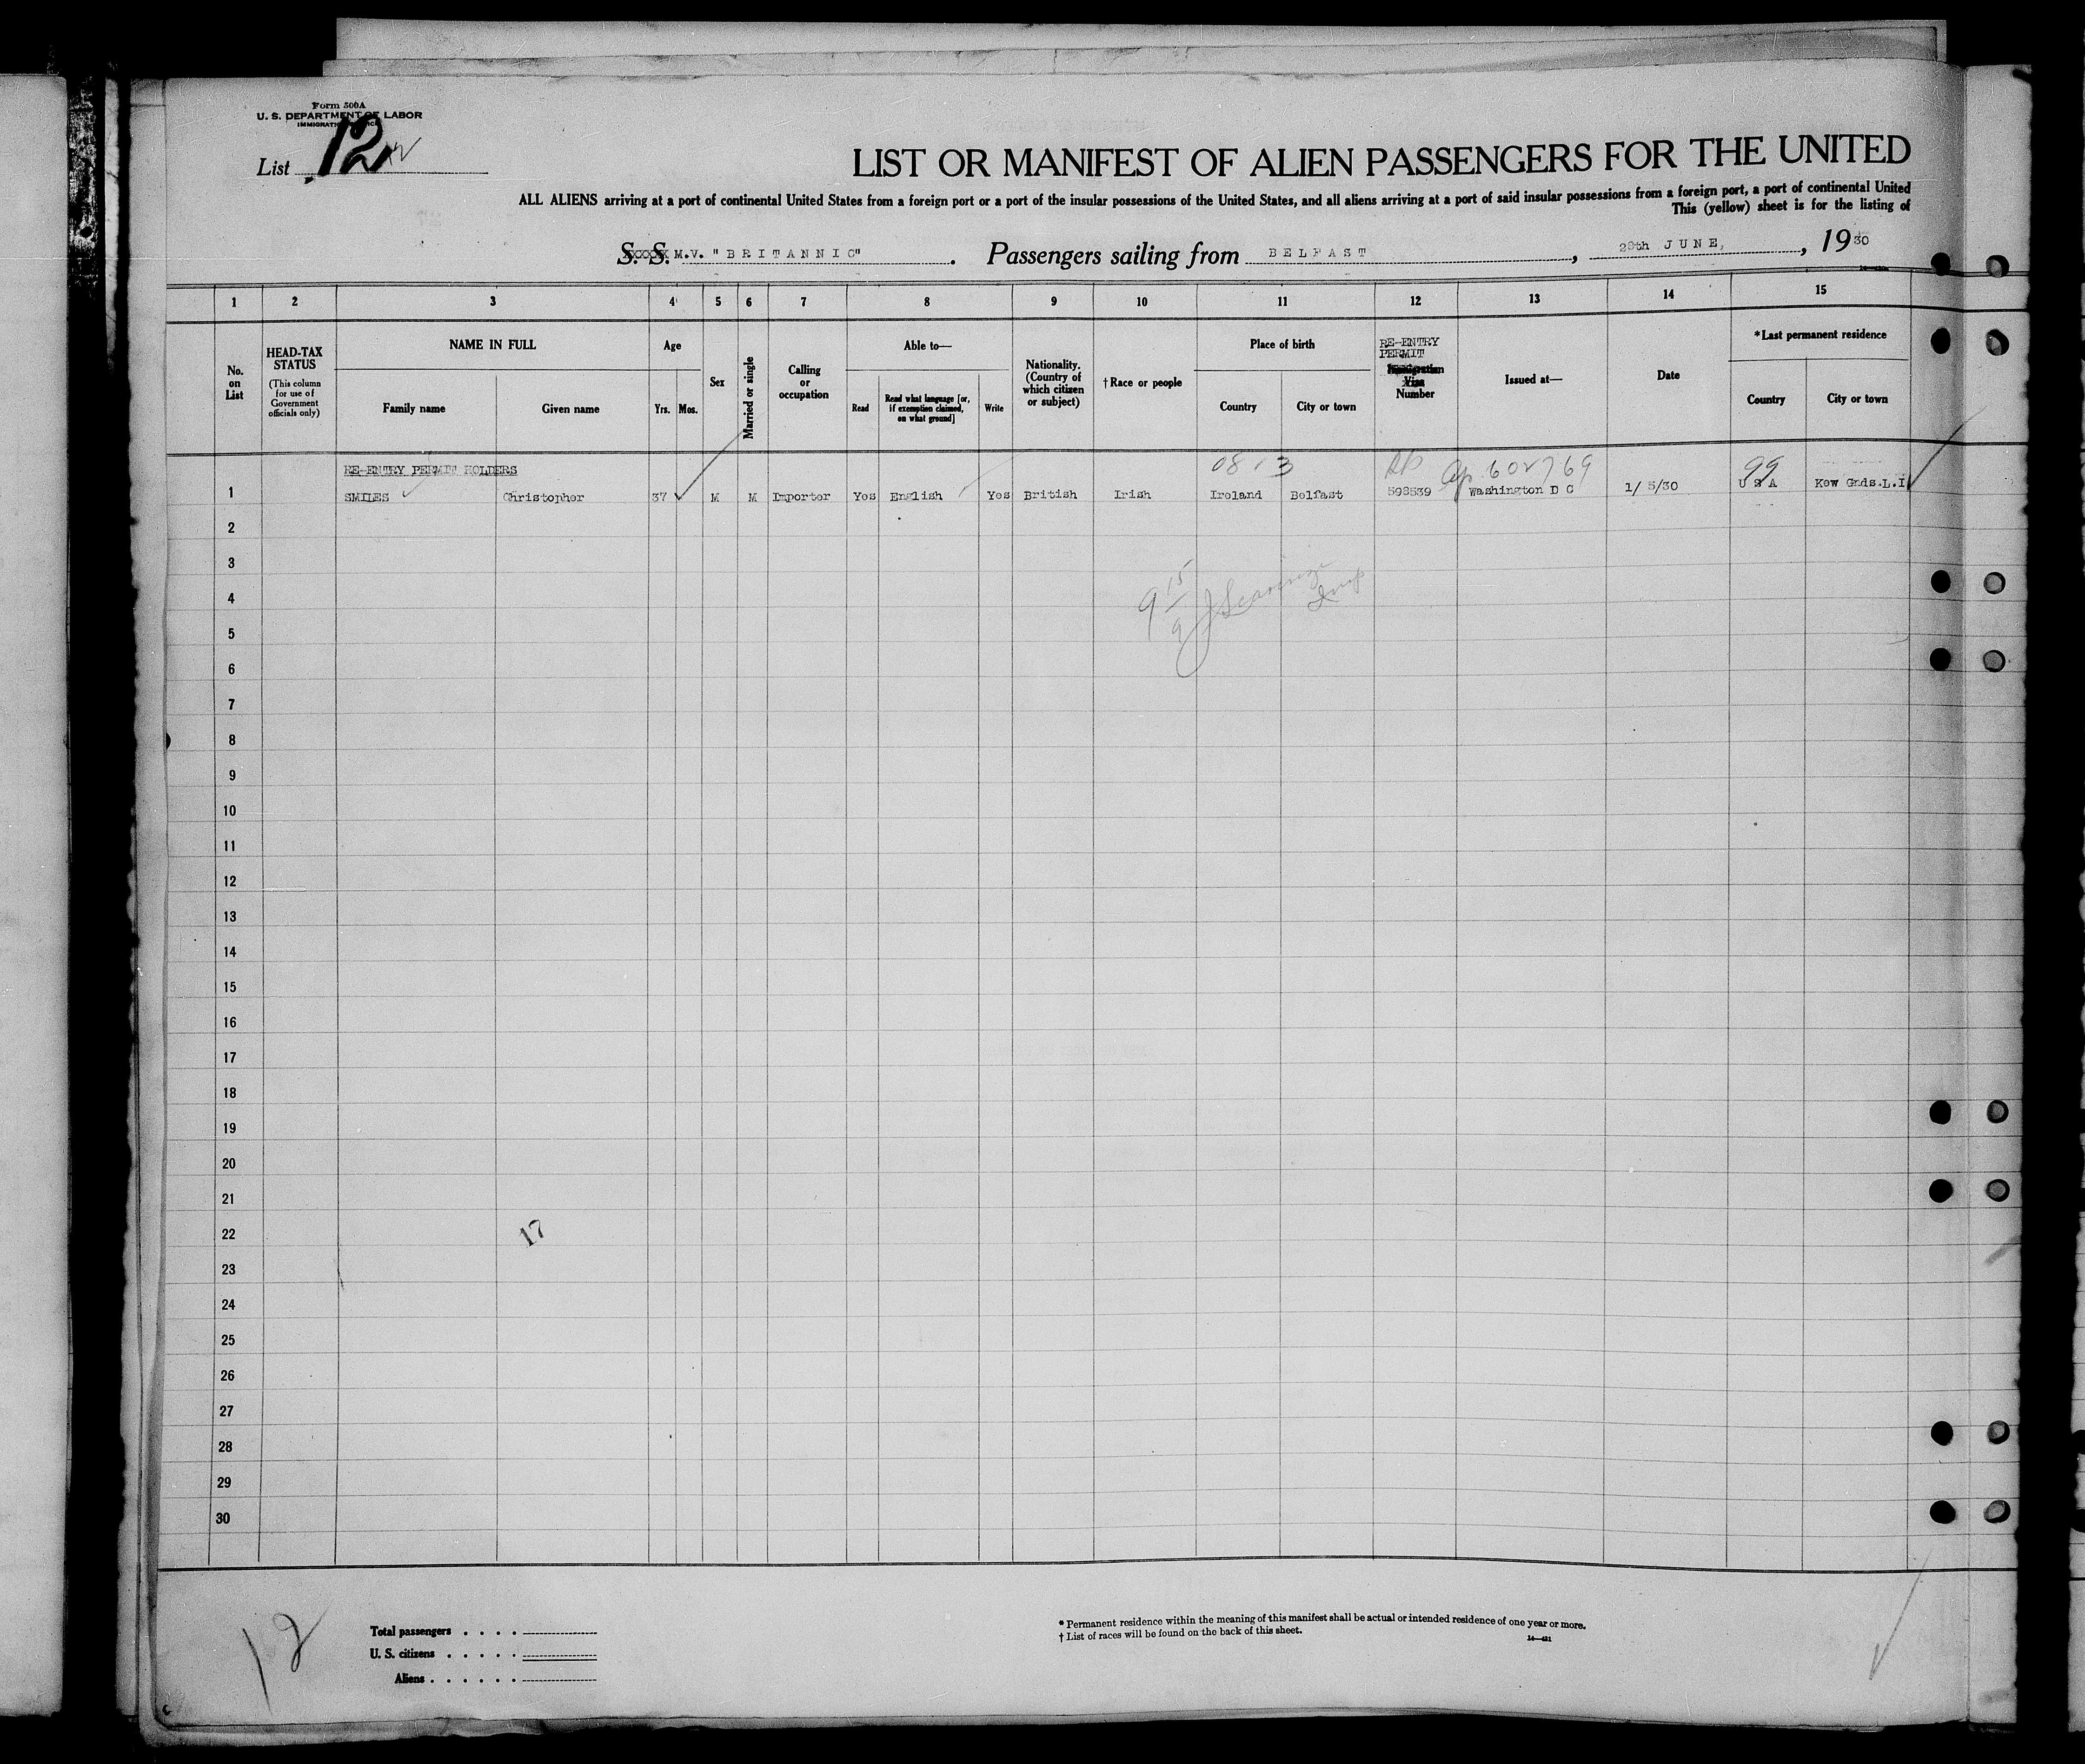 Form 500A
U. S. DEPARTMENT OF LABOR
IMMIGRATION SERVICE
List 12
LIST OR MANIFEST OF ALIEN PASSENGERS FOR THE UNITED
ALL ALIENS arriving at a port of continental United States from a foreign port or a port of the insular possessions of the United States, and all aliens arriving at a port of said insular possessions from a foreign port, a port of continental United
This (yellow) sheet is for the listing of
S. S. M.V. "BRITANNIC". Passengers sailing from BELFAST, 28th JUNE, 1930
1 2 3 4 5 6 7 8 9 10 11 12 13 14 15
No. on List
HEAD-TAX STATUS
(This column for use of Government officials only)
NAME IN FULL
Family name Given name
Age
Yrs. Mos.
Sex
Married or single
Calling or occupation
Able to—
Read
Read what language [or, if exemption claimed, on what ground]
Write
Nationality. (Country of which citizen or subject)
†Race or people
Place of birth
Country City or town
RE-ENTRY PERMIT
Immigration Visa
Number
Issued at—
Date
*Last permanent residence
Country City or town
RE-ENTRY PERMIT HOLDERS 08.3 RP 602769 99
1 SMILES Christopher 37 M M Importer Yes English Yes British Irish Ireland Belfast 598539 Washington D C 1/ 5/30 U S A Kew Gnds.L.I
2
3
4
5
6
7
8
9
10
11
12
13
14
15
16
17
18
19
20
21
22
17
23
24
25
26
27
28
29
30
12
Total passengers . . . .
U. S. citizens . . . . .
Aliens . . . . . .
* Permanent residence within the meaning of this manifest shall be actual or intended residence of one year or more.
† List of races will be found on the back of this sheet.